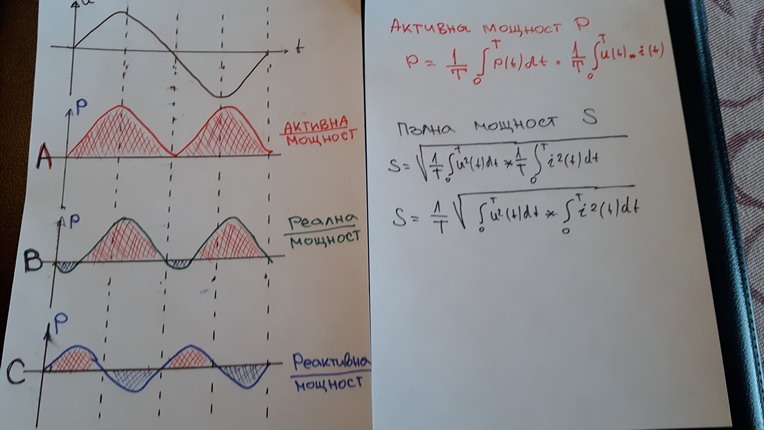 u
t
P
A
АКТИВНА
МОЩНОСТ
P
B
Реална
мощност
P
C
Реактивна
мощност
Активна мощност P
P = 1/T ∫₀ᵀ p(t)dt = 1/T ∫₀ᵀ u(t) * i(t)
Пълна мощност S
S = √(1/T ∫₀ᵀ u²(t)dt * 1/T ∫₀ᵀ i²(t)dt)
S = 1/T √(∫₀ᵀ u²(t)dt * ∫₀ᵀ i²(t)dt)